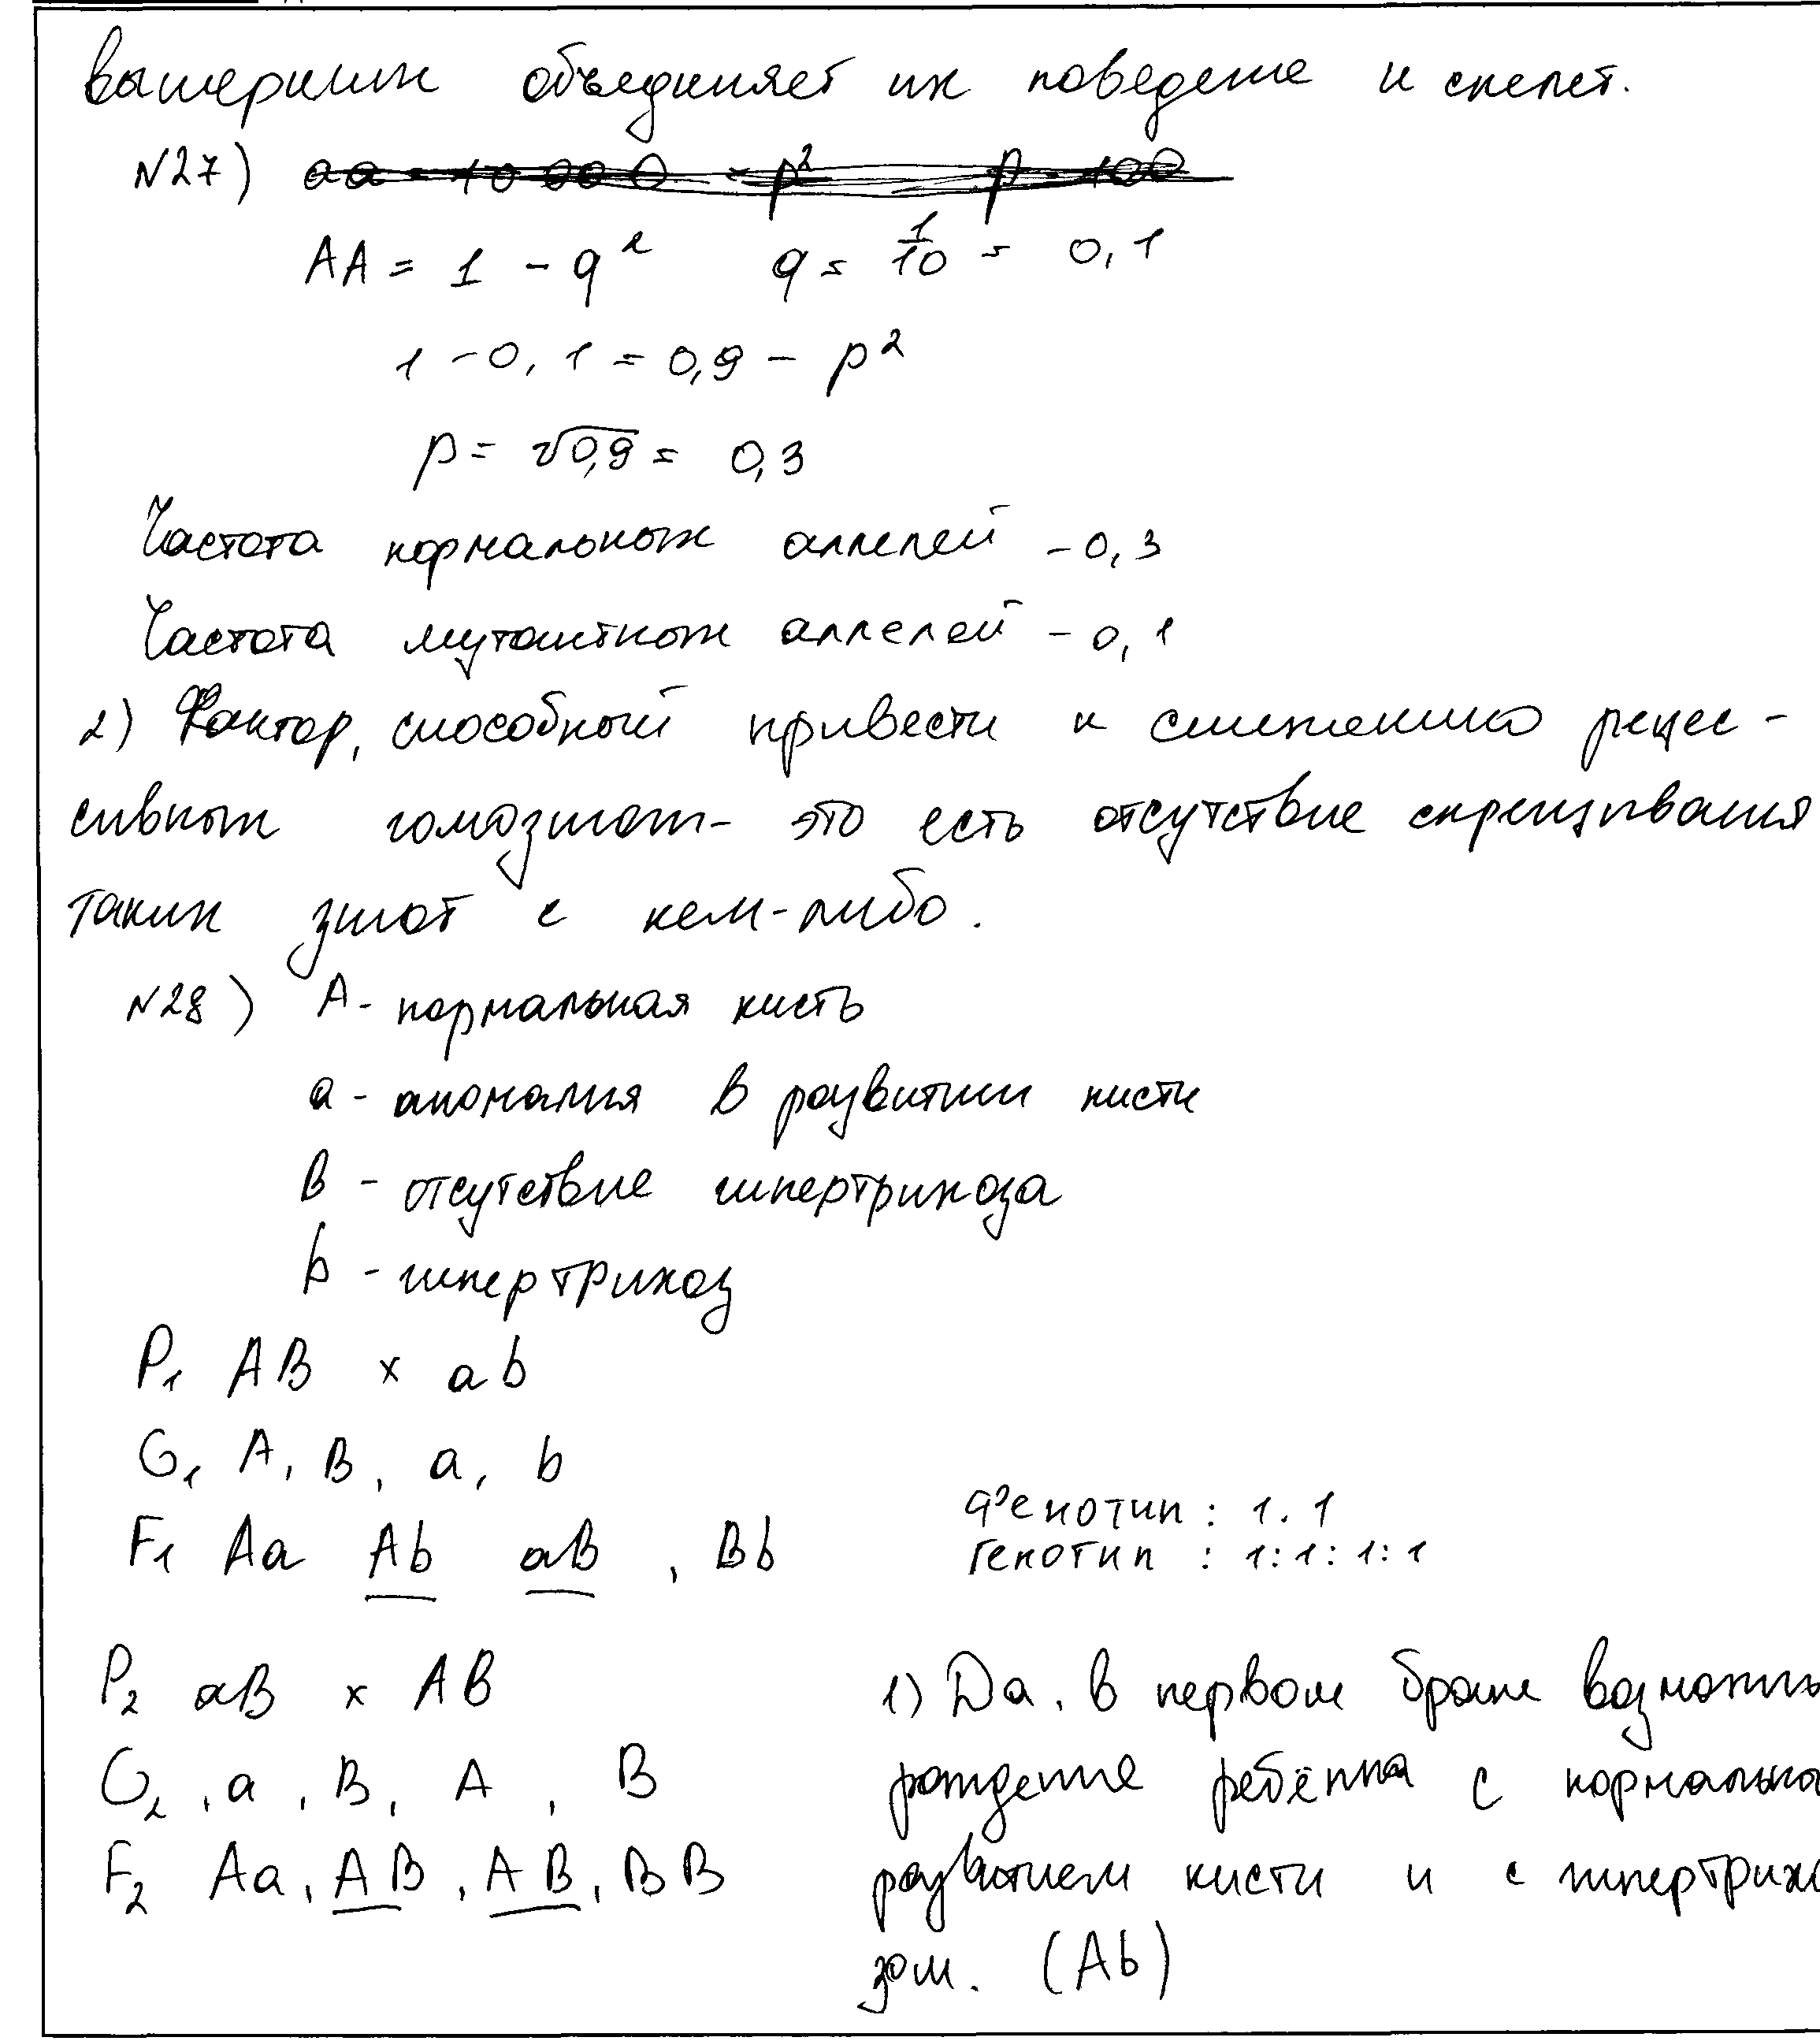 вымерших объединяет их поведение и скелет.
№27)
AA = 1 - q² q = 1/10 = 0,1
1 - 0,1 = 0,9 - p²
p = √0,9 = 0,3
Частота нормальных аллелей - 0,3
Частота мутантных аллелей - 0,1
2) Фактор, способный привести к снижению рецес-
сивных гомозигот - это есть отсутствие скрещивания
таких зигот с кем-либо.
№28) A - нормальная кисть
a - аномалия в развитии кисти
B - отсутствие гипертрихоза
b - гипертрихоз
P₁ AB x ab
G₁ A, B, a, b
Фенотип: 1.1
F₁ Aa Ab aB, Bb Генотип: 1:1:1:1
P₂ aB x AB 1) Да, в первом браке возможнь
G₂, a, B, A, B рождение ребёнка с нормальна
F₂ Aa, AB, AB, BB развитием кисти и с гипертрихо
зом. (Ab)